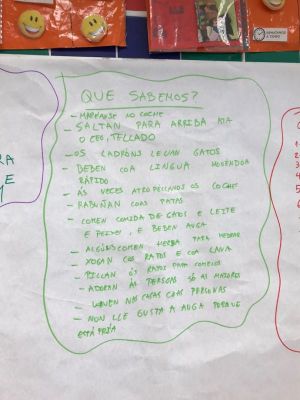 QUE SABEMOS?
- MAREANSE NO COCHE
- SALTAN PARA ARRIBA
O CEO, TELLADO
- OS LADRÓNS LEVAN GATOS
- BEBEN COA LINGUA MOVENDOA
RÁPIDO
- ÁS VECES ATROPELLANOS OS COCHE
- RABUÑAN COAS PATAS
- COMEN COMIDA DE GATOS E LEITE
E PEIXE, E BEBEN AUGA
- ALGÚNS COMEN HERBA PARA
- XOGAN COS RATOS E COA LANA
- PILLAN ÓS RATOS PARA COMELOS
- ADORAN ÁS PERSOAS SÓ AS MAIORES
- VIVEN NAS CASAS COAS PERSONAS
- NON LLE GUSTA A AUGA PORQUE
ESTÁ FRÍA